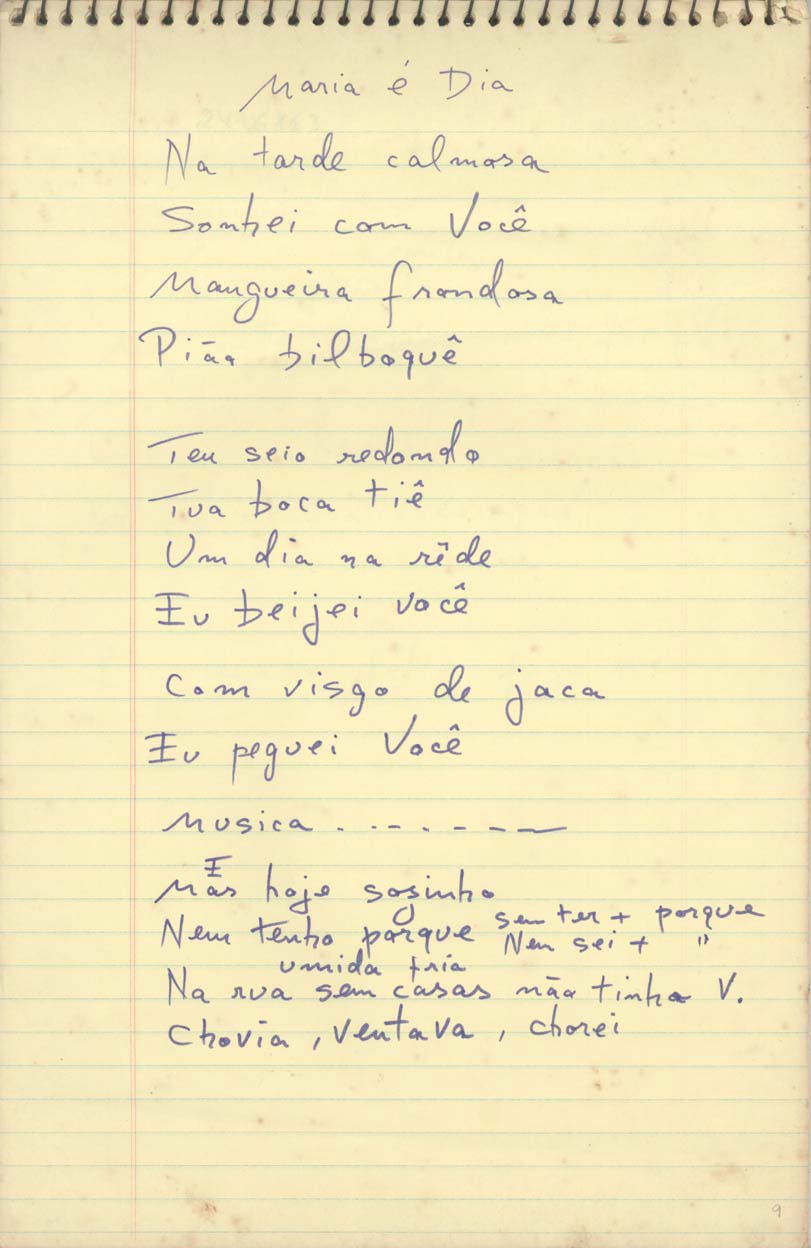 Maria é Dia
Na tarde calmosa
Sonhei com Você
Mangueira frondosa
Pião bilboquê
Teu seio redondo
Tua boca tiê
Um dia na rêde
Eu beijei você
Com visgo de jaca
Eu peguei Você
Musica . . - . - - —
E
Mas hoje sosinho
sem ter + porque
Nem tenho porque Nem sei + "
umida fria
Na rua sem casas não tinha V.
Chovia, ventava, chorei
9